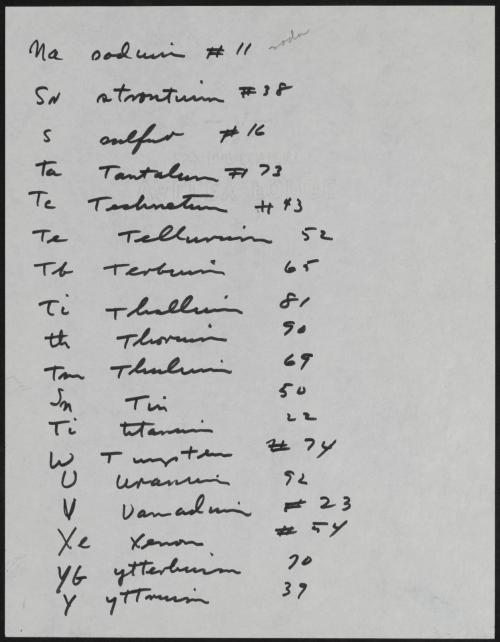 Na sodium # 11 soda
Sr strontium # 38
S sulfur # 16
Ta Tantalum # 73
Tc Technetium # 43
Te Tellurium 52
Tb Terbium 65
Ti Thallium 81
th Thorium 90
Tm Thulium 69
Sn Tin 50
Ti titanium 22
W Tungsten # 74
U uranium 92
V Vanadium # 23
Xe Xenon # 54
Yb ytterbium 70
Y yttrium 39